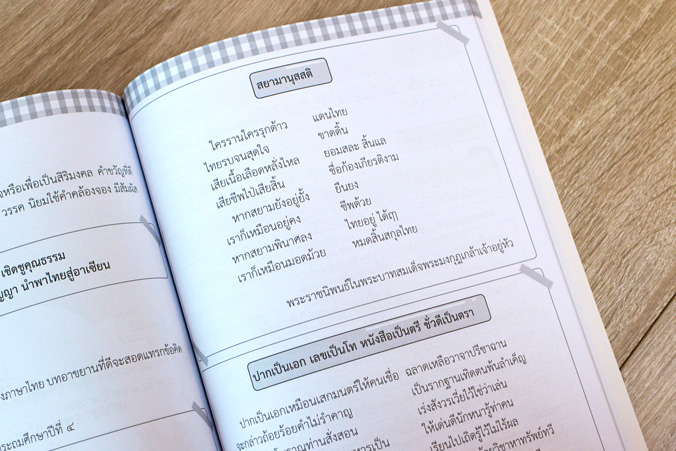 จหรือเพื่อเป็นสิริมงคล คำขวัญที่ดี
วรรค นิยมใช้คำคล้องจอง มีสัมผัส
เชิดชูคุณธรรม
ญญา นำพาไทยสู่อาเซียน
งภาษาไทย บทอาขยานที่ดีจะสอดแทรกข้อคิด
ระถมศึกษาปีที่ ๔
สยามานุสสติ
ใครรานใครรุกด้าว แดนไทย
ไทยรบจนสุดใจ ขาดดิ้น
เสียเนื้อเลือดหลั่งไหล ยอมสละ สิ้นแล
เสียชีพไป่เสียสิ้น ชื่อก้องเกียรติงาม
หากสยามยังอยู่ยั้ง ยืนยง
เราก็เหมือนอยู่คง ชีพด้วย
หากสยามพินาศลง ไทยอยู่ ได้ฤๅ
เราก็เหมือนมอดม้วย หมดสิ้นสกุลไทย
พระราชนิพนธ์ในพระบาทสมเด็จพระมงกุฎเกล้าเจ้าอยู่หัว
ปากเป็นเอก เลขเป็นโท หนังสือเป็นตรี ชั่วดีเป็นตรา
ปากเป็นเอกเหมือนเสกมนตรีให้คนเชื่อ ฉลาดเหลือวาจาปรีชาฉาน
จะกล่าวถ้อยร้อยคำไม่รำคาญ เป็นรากฐานเทิดตนพ้นลำเค็ญ
เร่งสังวรเวี่ยไว้ใช่ว่าเล่น
ราณท่านสั่งสอน ให้เด่นดีนักหนารู้ท่าคน
หารเป็น เรียนไปเถิดรู้ไว้ไม่ไร้ผล
วิชาหาทรัพย์ทวี